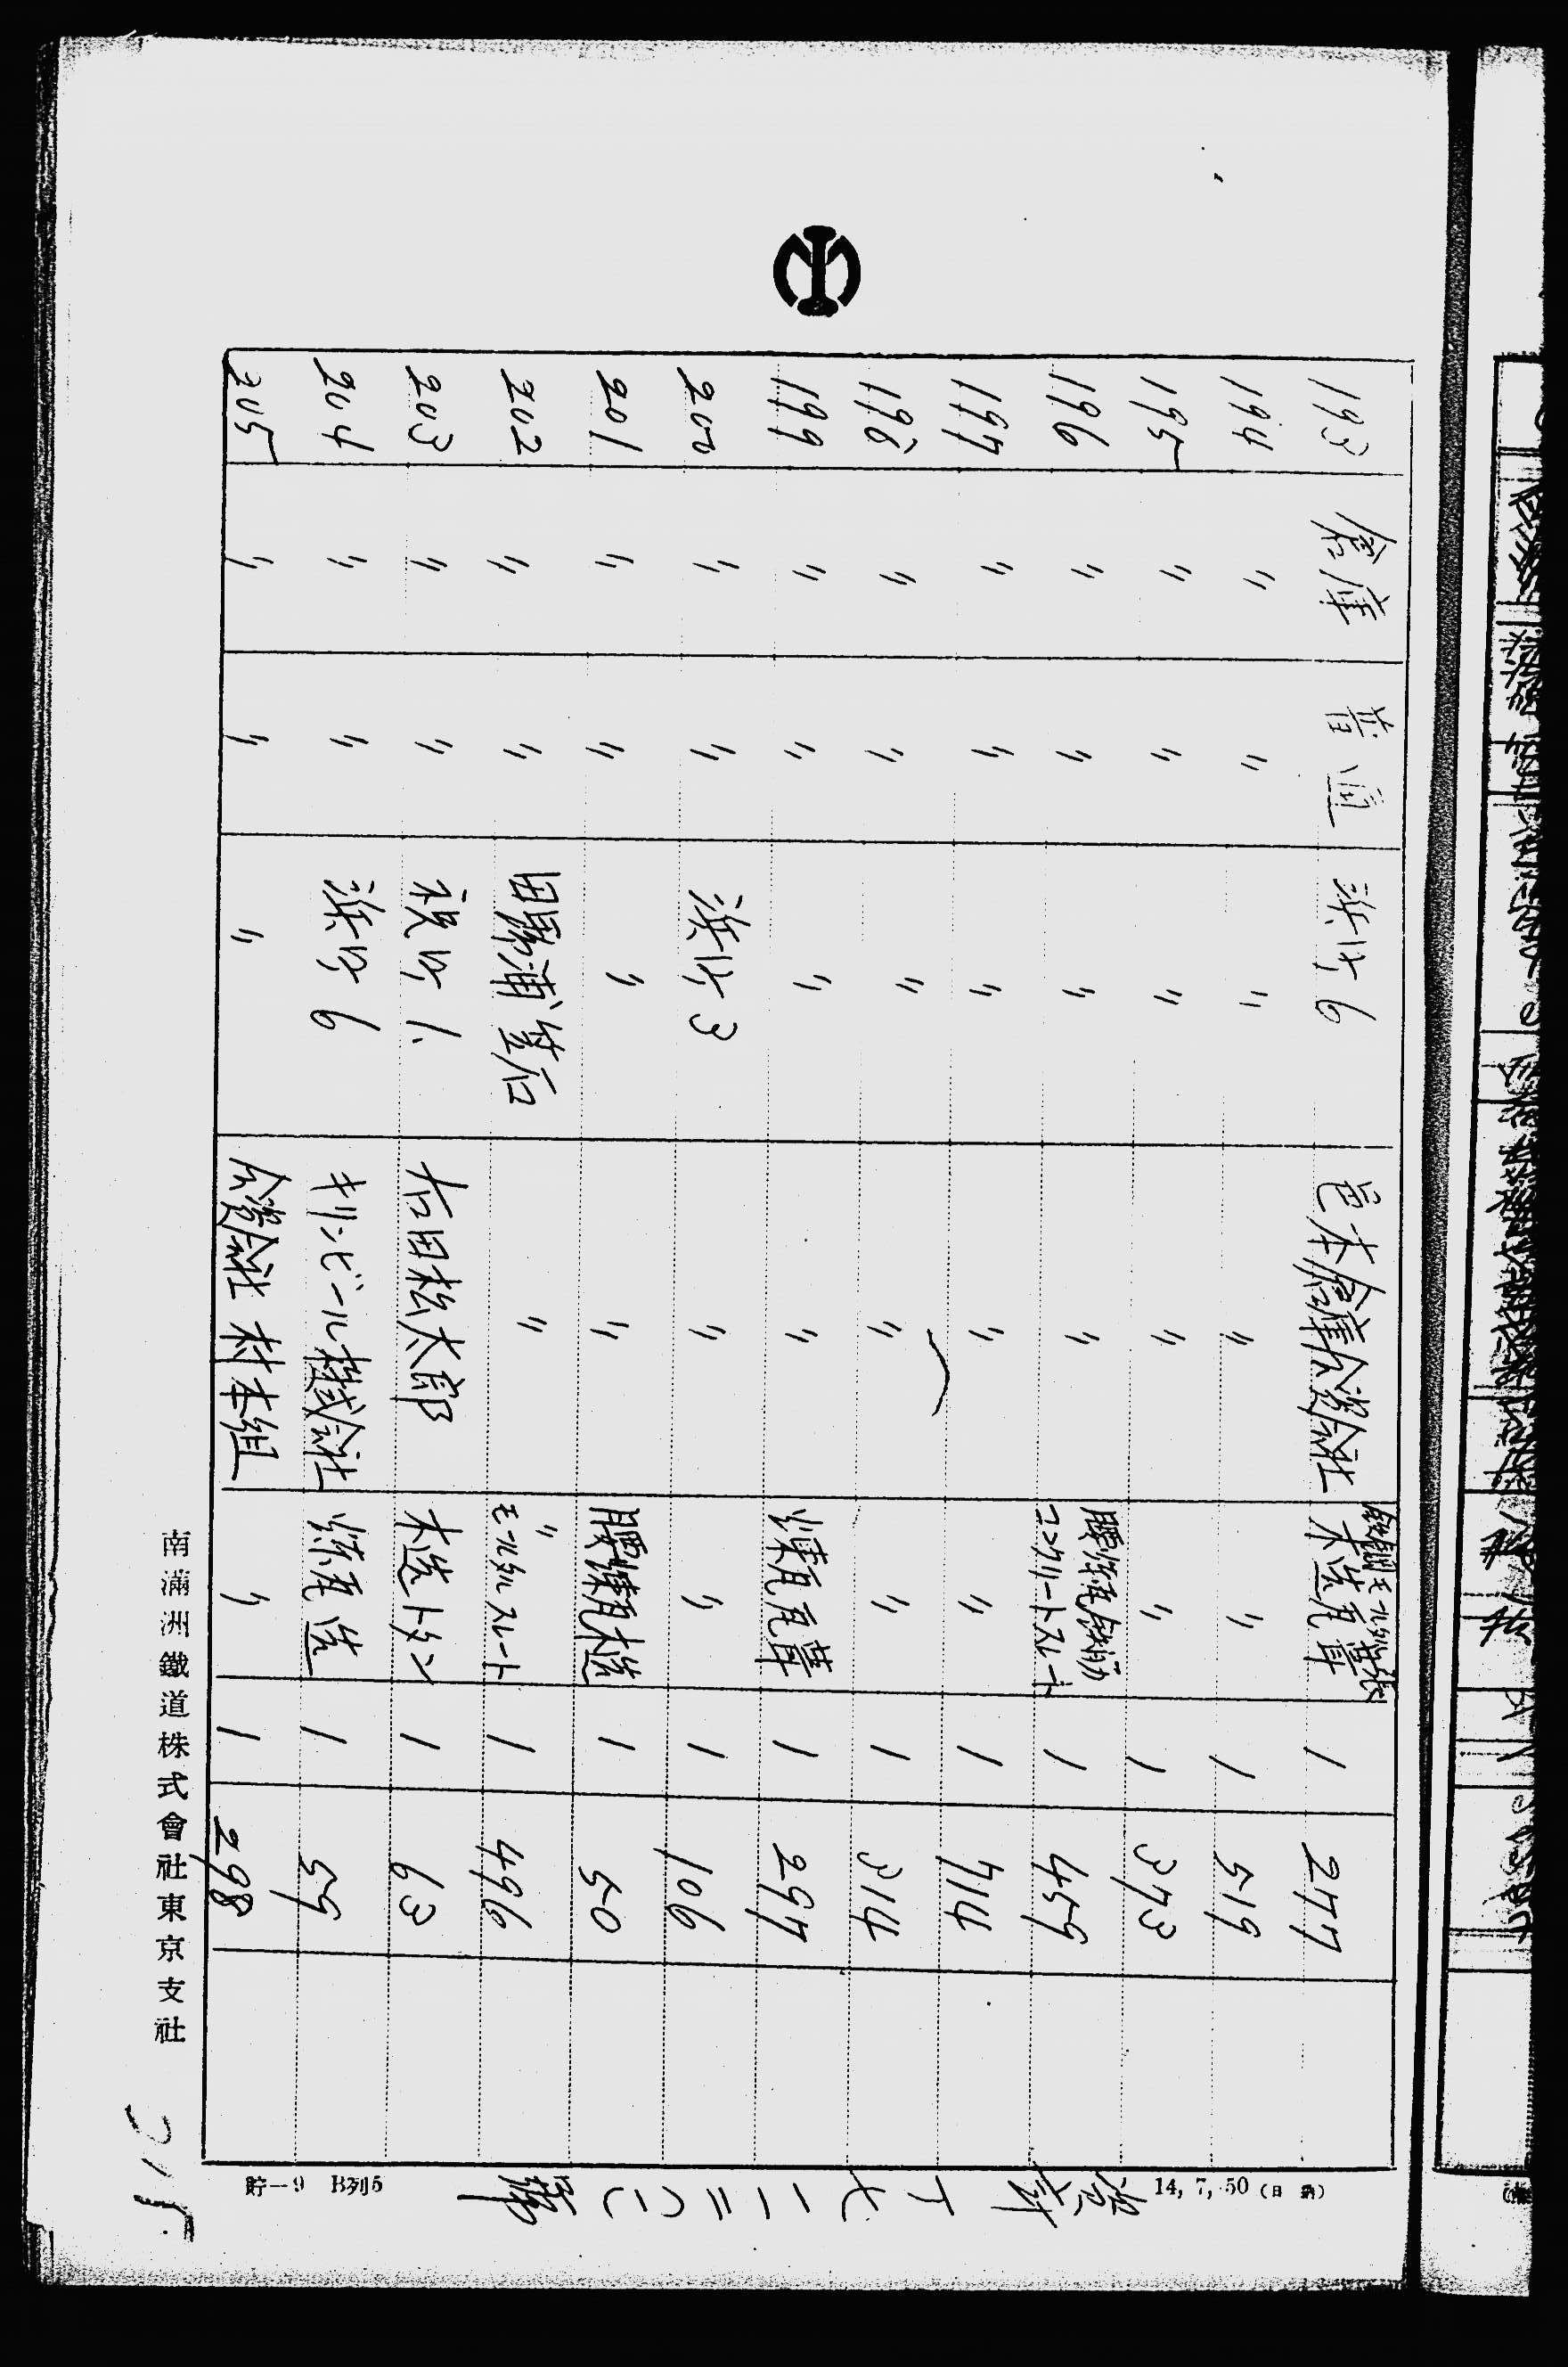 193 倉庫 普通 浜町 6 日本倉庫合資会社 鉄網モルタル塗張 木造瓦葺 1 277
194 〃 〃 〃 〃 〃 1 519
195 〃 〃 〃 〃 〃 1 373
196 〃 〃 〃 〃 腰煉瓦鉄筋 コンクリートスレート 1 459
197 〃 〃 〃 〃 〃 1 714
198 〃 〃 〃 〃 〃 1 314
199 〃 〃 〃 〃 煉瓦瓦葺 1 297
200 〃 〃 浜町 3 〃 〃 1 106
201 〃 〃 〃 〃 腰煉瓦木造 1 50
202 〃 〃 〃 〃 モールタルスレート 1 496
203 〃 〃 町 1. 右田松太郎 木造トタン 1 63
204 〃 〃 浜町 6 キリンビール株式会社 煉瓦造 1 59
205 〃 〃 〃 合資会社 村本組 〃 1 298
南滿洲鐵道株式會社東京支社
貯－9 B列5
14, 7, 50 (日 納)
315